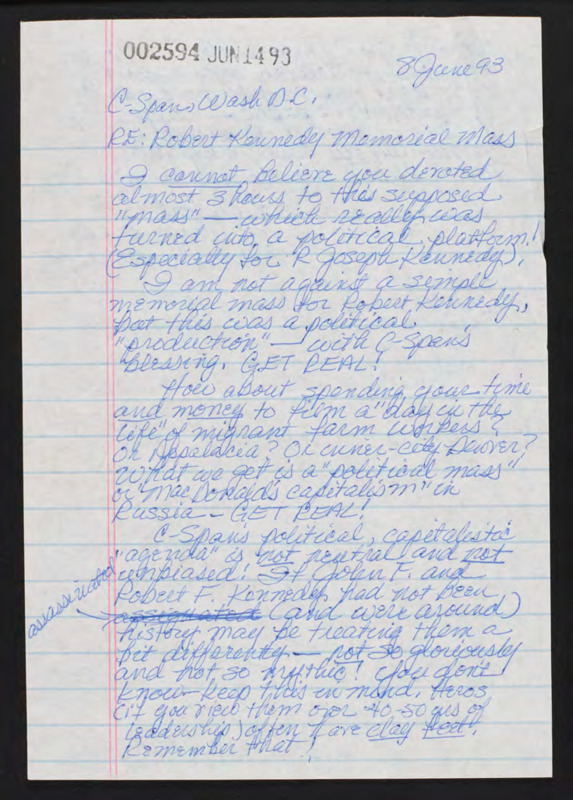 002594 JUN 14 93
8 June 93
C-Span, Wash D.C.
RE: Robert Kennedy Memorial Mass
I cannot believe you devoted
almost 3 hours to this supposed
"mass" — which really was
turned into a political platform!
(Especially for R. Joseph Kennedy).
I am not against a simple
memorial mass for Robert Kennedy,
but this was a political
"production" — with C-Span's
blessing. GET REAL!
How about spending your time
and money to film a "day in the
life" of migrant farm workers?
Or Appalacia? Or inner-city Denver?
What we get is a "political mass"
or "MacDonald's capitalism" in
Russia – GET REAL!
C-Spans political, capitalistic
"agenda" is not neutral and not
unbiased! If John F. and
Robert F. Kennedy had not been
assassinated (and were around)
history may be treating them a
bit differently — not so gloriously
and not so mythic! You don't
know – keep this in mind. Heros
(if you view them over 40-50 yrs of
leadership) often have clay feet!
Remember that!